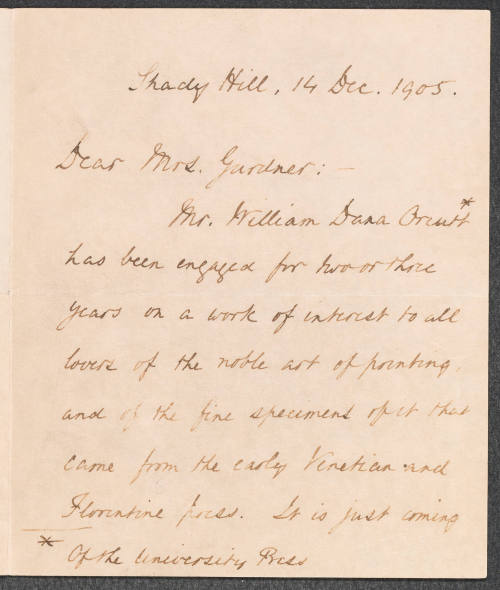 Shady Hill, 14 Dec. 1905.
Dear Mrs. Gardner: —
Mr. William Dana Orcutt*
has been engaged for two or three
years on a work of interest to all
lovers of the noble art of printing,
and of the fine specimens of it that
came from the early Venetian and
Florentine press. It is just coming
* Of the University Press